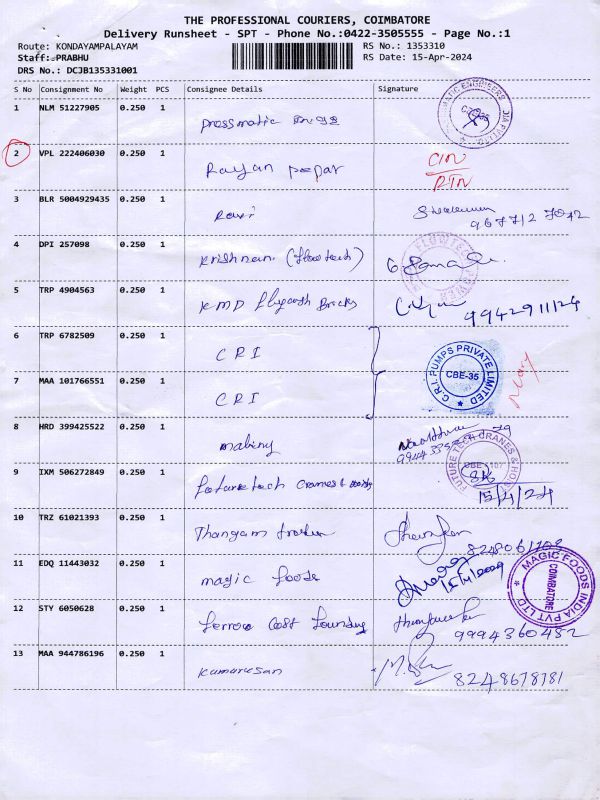 THE PROFESSIONAL COURIERS, COIMBATORE
Delivery Runsheet - SPT - Phone No.:0422-3505555 - Page No.:1
Route: KONDAYAMPALAYAM RS No.: 1353310
Staff: PRABHU RS Date: 15-Apr-2024
DRS No.: DCJB135331001
S No Consignment No Weight PCS Consignee Details Signature
1 NLM 51227905 0.250 1 pressmatic
2 VPL 222406030 0.250 1 Rayan CIN
RTN
3 BLR 5004929435 0.250 1 Ravi
96771 2 7042
4 DPI 257098 0.250 1 Krishnan (flowtech)
FLOWTECH
5 TRP 4904563 0.250 1 KMD Flyash Bricks 9942911124
6 TRP 6782509 0.250 1 CRI
C.R.I. PUMPS PRIVATE LIMITED
CBE-35
7 MAA 101766551 0.250 1 CRI
8 HRD 399425522 0.250 1
9 IXM 506272849 0.250 1 Futuretech cranes &
FUTURE TECH CRANES & HOIST
15/4/24
10 TRZ 61021393 0.250 1 Thangam
11 EDQ 11443032 0.250 1 magic foods
MAGIC FOODS INDIA PVT LTD
COIMBATORE
12 STY 6050628 0.250 1 Ferrow Cast Foundry
9994360482
13 MAA 944786196 0.250 1 Kumaresan
8248678781